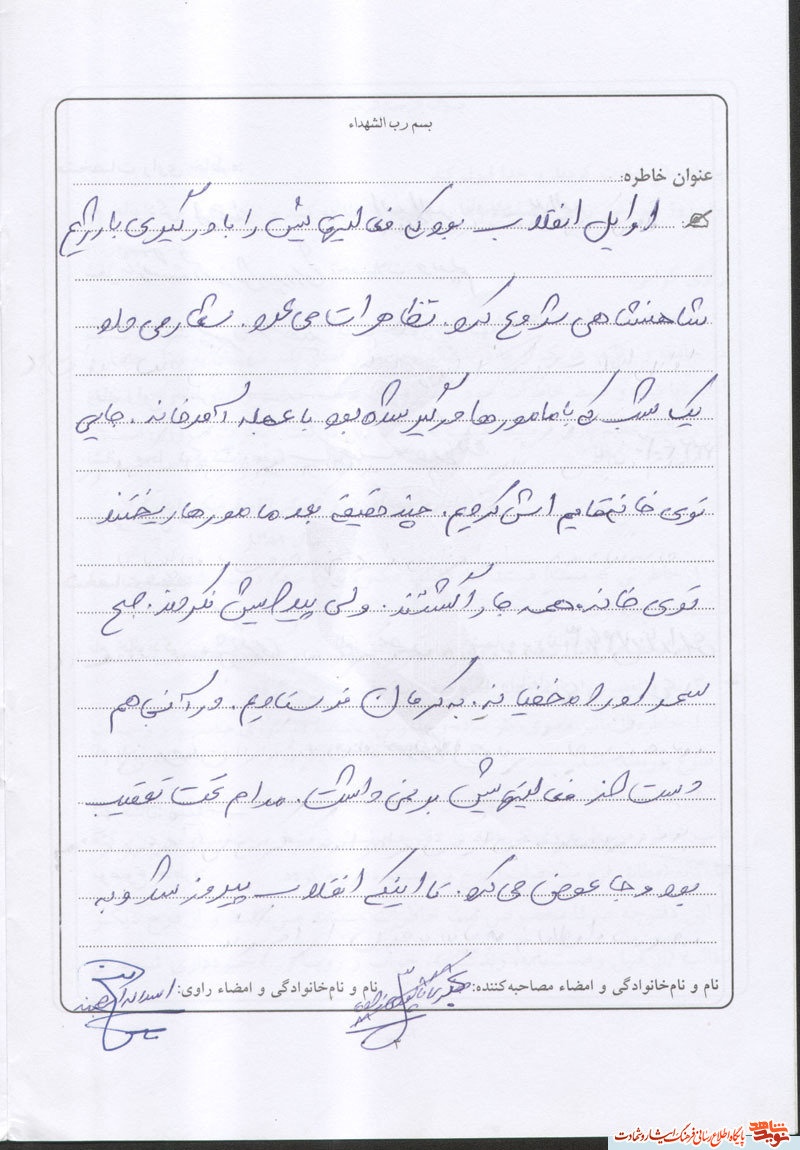 بسم رب الشهداء
عنوان خاطره:
اوایل انقلاب بود که فعالیتهایش را با درگیری با رژیم
شاهنشاهی شروع کرد. تظاهرات می کرد. شعار می داد
یک شب که با مامورها درگیر شده بود با عجله آمد خانه. جایی
توی خانه قایم اش کردیم. چند دقیقه بعد مامورها ریختند
توی خانه. همه جا را گشتند. ولی پیدایش نکردند. صبح
سحر او را مخفیانه. به کرمان فرستادیم. در آنجا هم
دست از فعالیتهایش بر نمی داشت. مدام تحت تعقیب
بود و جا عوض می کرد. تا اینکه انقلاب پیروز شد و به
نام و نام‌خانوادگی و امضاء مصاحبه‌کننده: نام و نام‌خانوادگی و امضاء راوی:
۳
نوید شاهد پایگاه اطلاع رسانی فرهنگ ایثار و شهادت